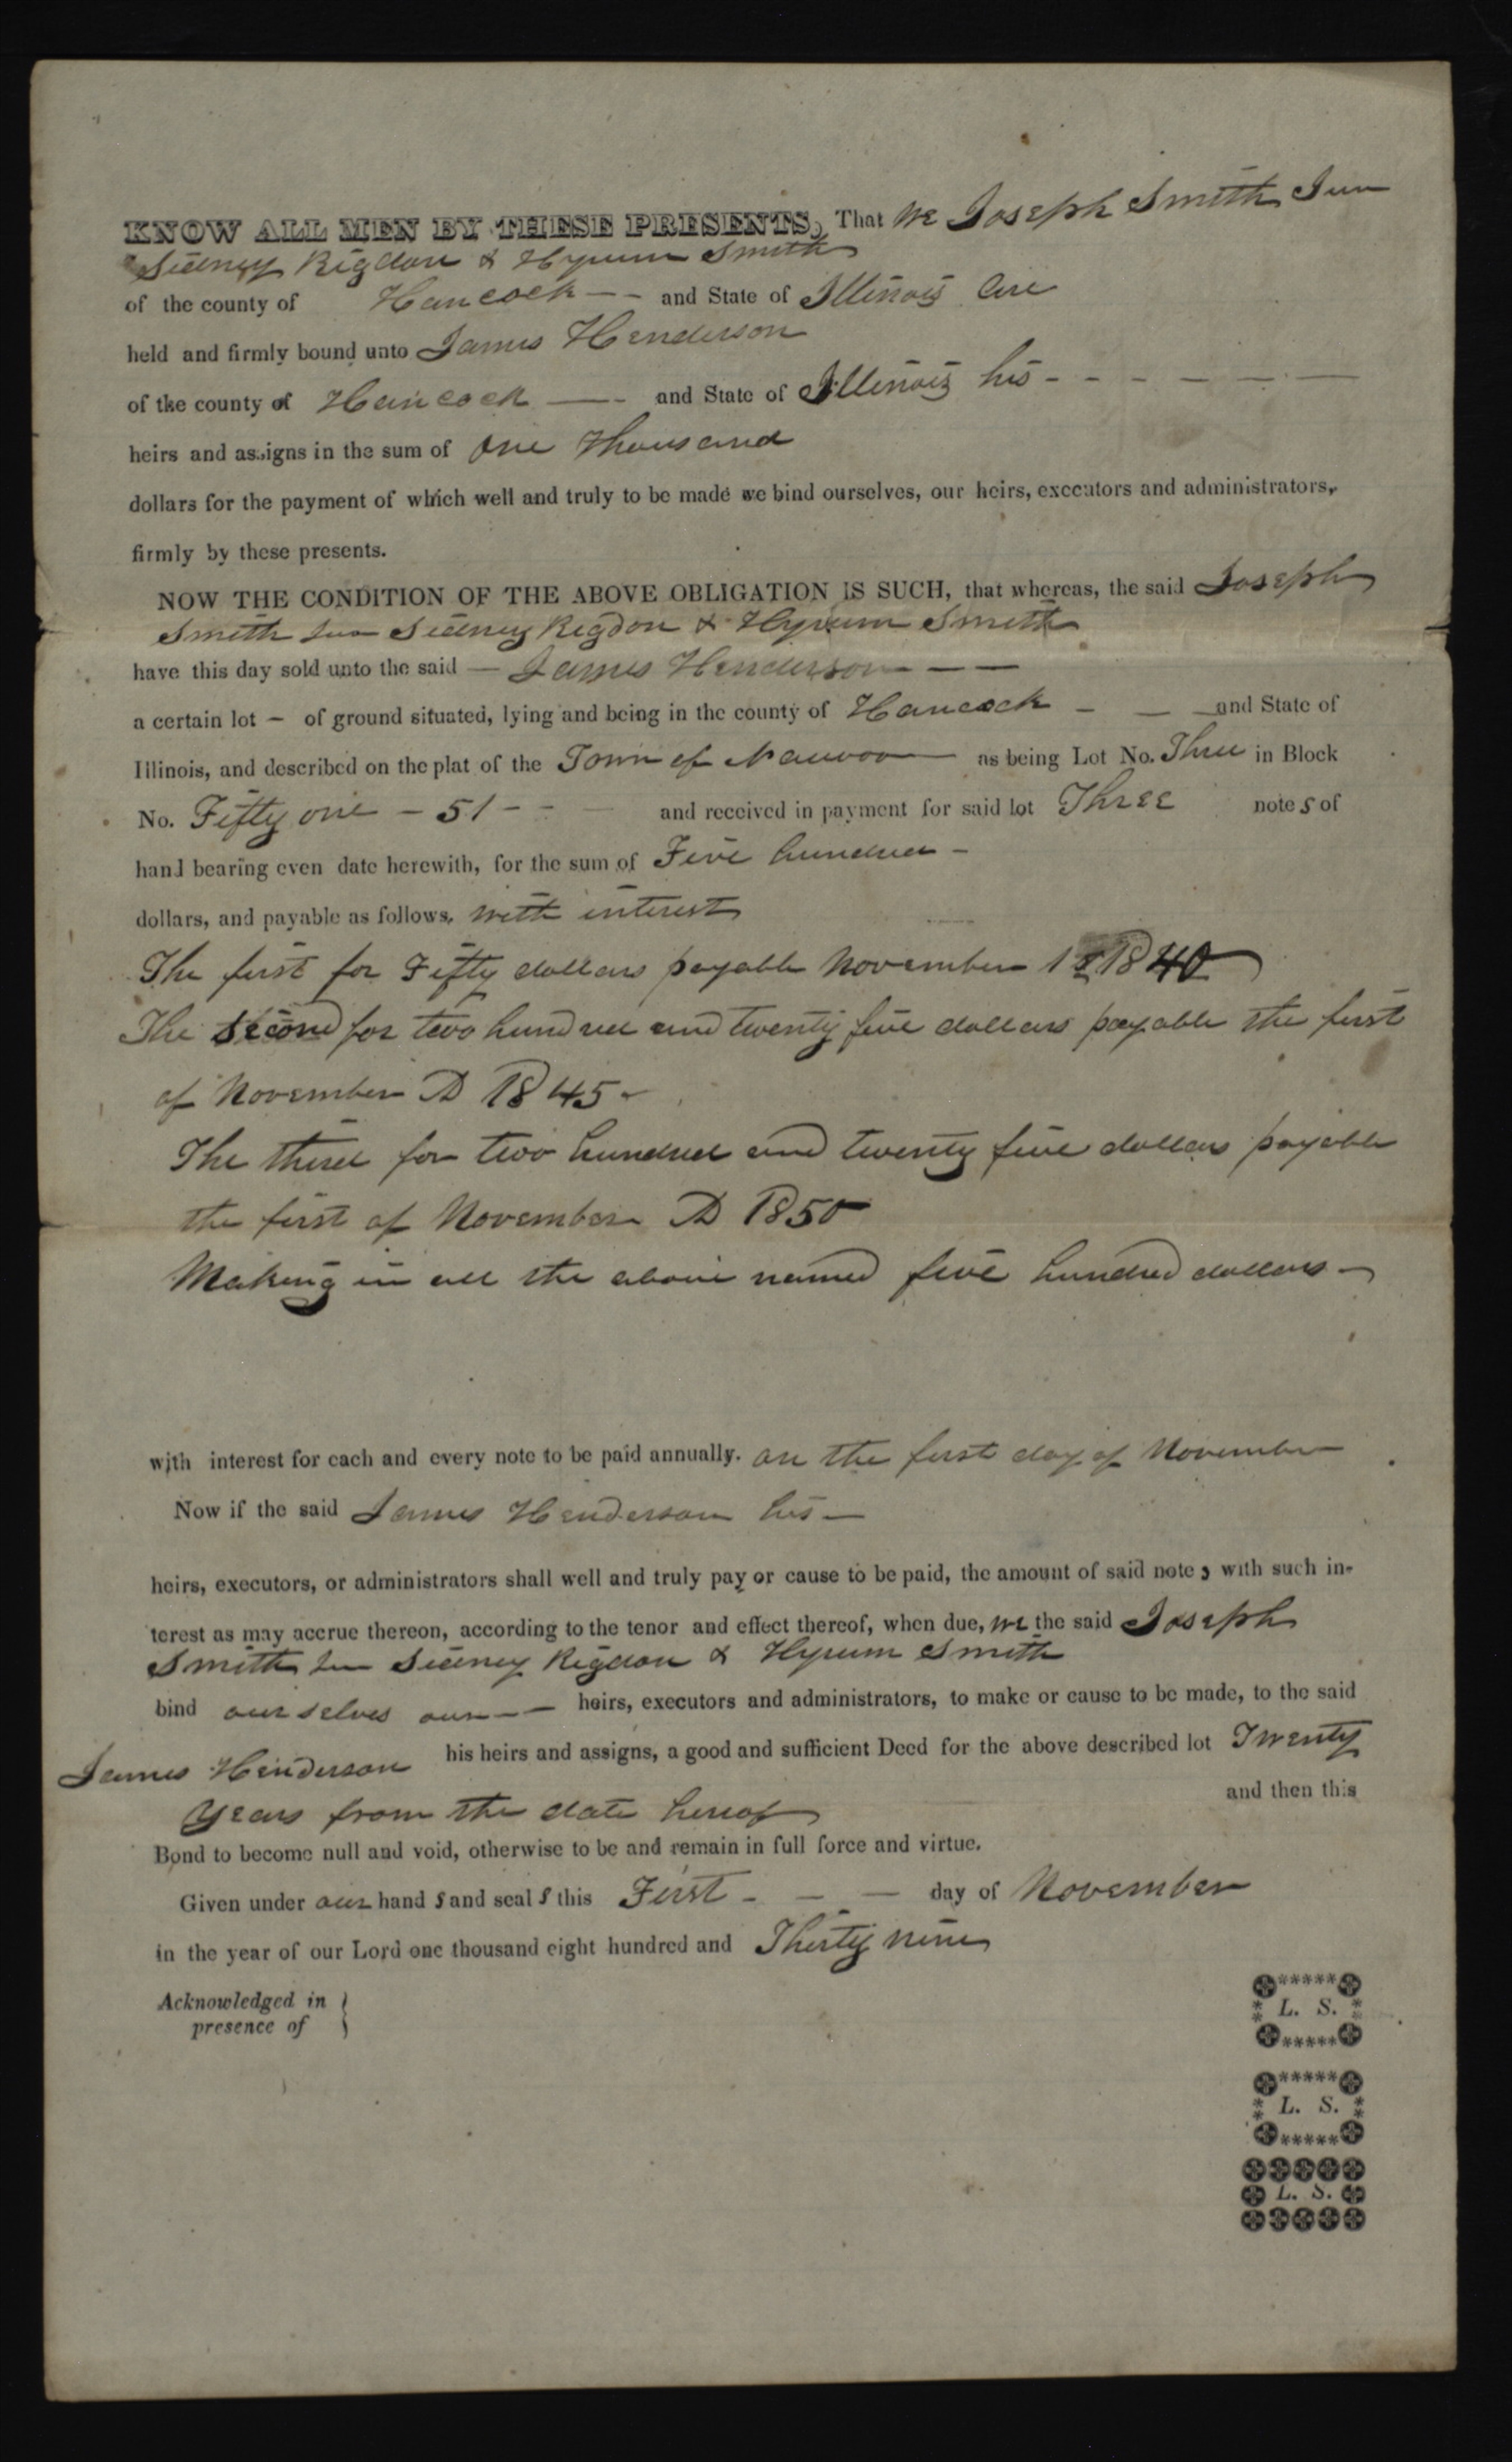 KNOW ALL MEN BY THESE PRESENTS, That we Joseph Smith Jun
Sidney Rigdon & Hyrum Smith
of the county of Hancock — - and State of Illinois are
held and firmly bound unto James Henderson
of the county of Hancock — - and State of Illinois his - - - - - —
heirs and assigns in the sum of One Thousand
dollars for the payment of which well and truly to be made we bind ourselves, our heirs, executors and administrators,
firmly by these presents.
NOW THE CONDITION OF THE ABOVE OBLIGATION IS SUCH, that whereas, the said Joseph
Smith Jun Sidney Rigdon & Hyrum Smith
have this day sold unto the said — James Henderson — —
a certain lot - of ground situated, lying and being in the county of Hancock - — — and State of
Illinois, and described on the plat of the Town of Nauvoo — as being Lot No. Three in Block
No. Fifty one - 51 - - — and received in payment for said lot Three note s of
hand bearing even date herewith, for the sum of Five hundred -
dollars, and payable as follows, with interest
The first for Fifty dollars payable November 1st 1840
The second for two hundred and twenty five dollars payable the first
of November AD 1845 -
The third for two hundred and twenty five dollars payable
the first of November AD 1850
Making in all the above named five hundred dollars —
with interest for each and every note to be paid annually. on the first day of November
Now if the said James Henderson his —
heirs, executors, or administrators shall well and truly pay or cause to be paid, the amount of said note s with such in-
terest as may accrue thereon, according to the tenor and effect thereof, when due, we the said Joseph
Smith Jun Sidney Rigdon & Hyrum Smith
bind ourselves our — — heirs, executors and administrators, to make or cause to be made, to the said
James Henderson his heirs and assigns, a good and sufficient Deed for the above described lot Twenty
Years from the date hereof and then this
Bond to become null and void, otherwise to be and remain in full force and virtue.
Given under our hand s and seal s this First - — — day of November
in the year of our Lord one thousand eight hundred and Thirty nine
Acknowledged in }
presence of }
L. S.
L. S.
L. S.